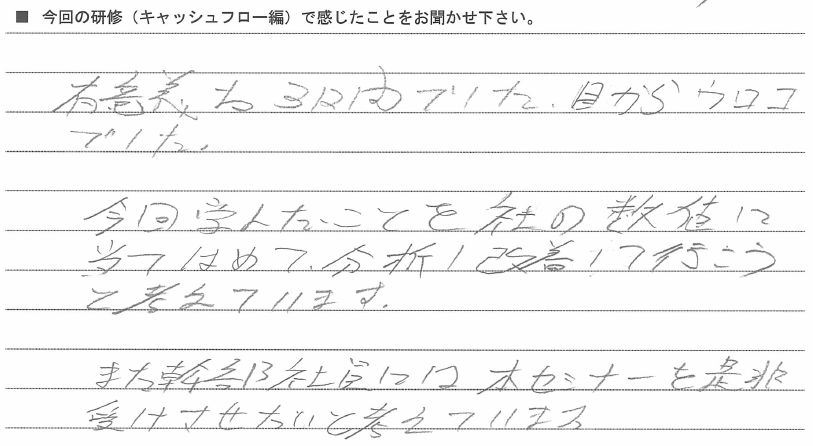 ■ 今回の研修（キャッシュフロー編）で感じたことをお聞かせ下さい。
有意義な3日間でした。目からウロコ
でした。
今回学んだことを社の数値に
当てはめて、分析し改善して行こう
と考えています。
また幹部社員には本セミナーを是非
受けさせたいと考えています